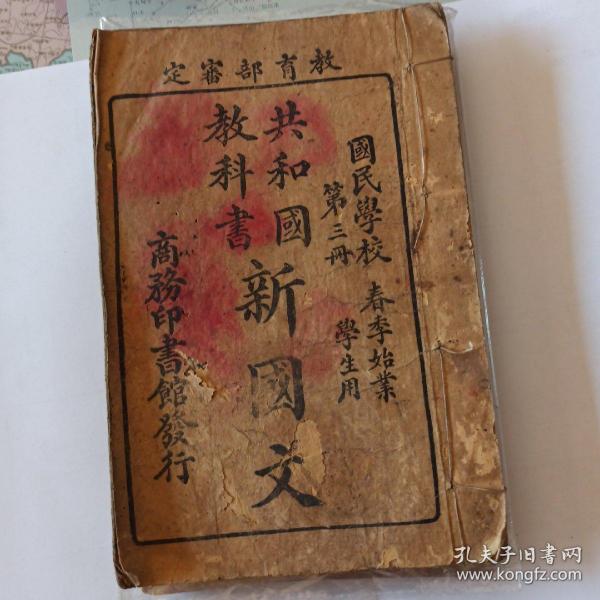 教育部審定
國民學校 春季始業
第三冊 學生用
共和國
教科書
新國文
商務印書館發行
孔夫子旧书网
www.kongfz.com